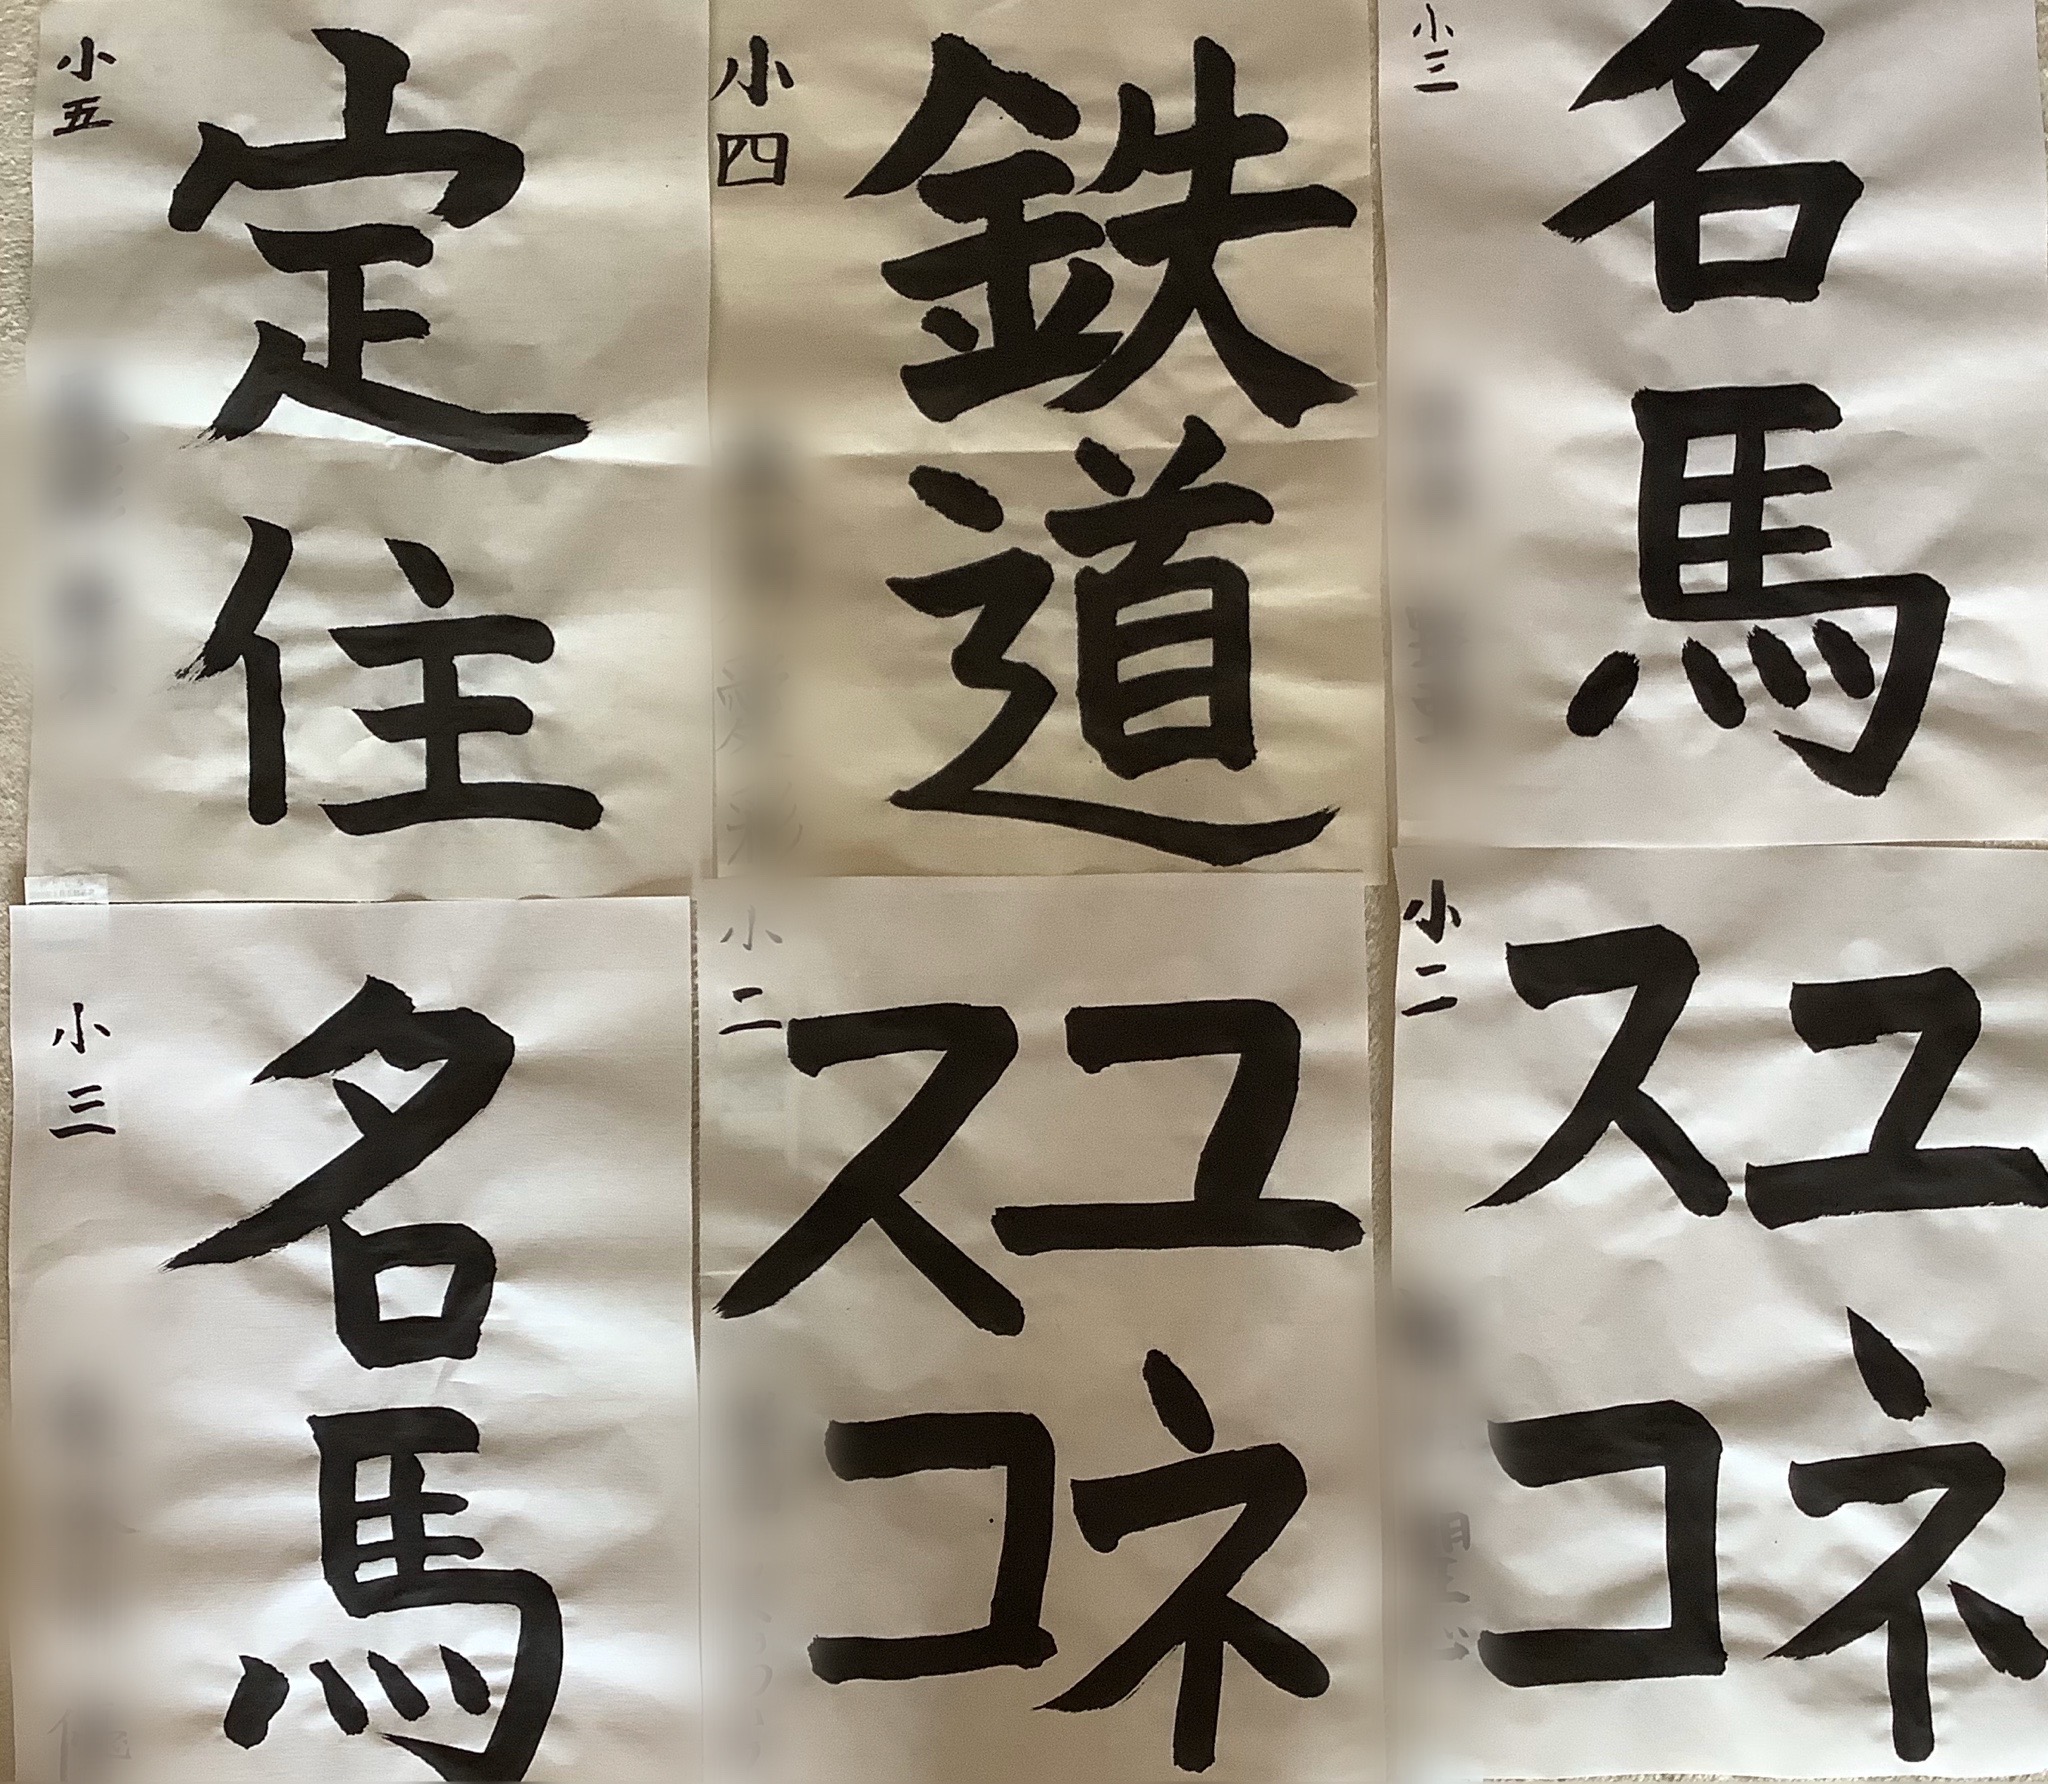 定住
小五
鉄道
小四
名馬
小三
名馬
小三
ユネ
スコ
小二
ユネ
スコ
小二